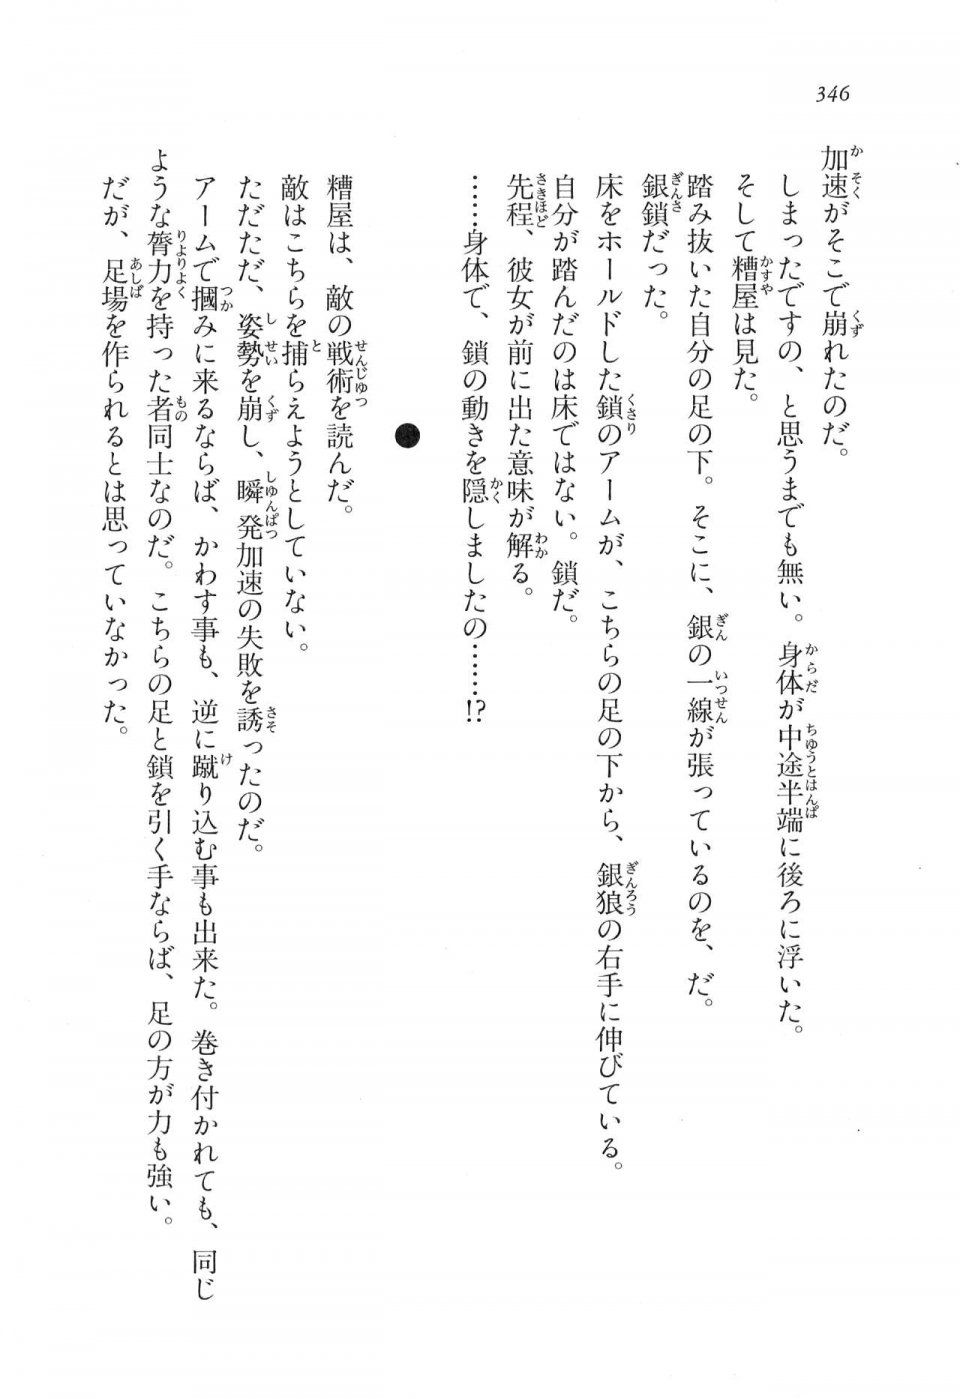 346
加速がそこで崩れたのだ。
しまったですの、と思うまでも無い。身体が中途半端に後ろに浮いた。
そして糟屋は見た。
踏み抜いた自分の足の下。そこに、銀の一線が張っているのを、だ。
銀鎖だった。
床をホールドした鎖のアームが、こちらの足の下から、銀狼の右手に伸びている。
自分が踏んだのは床ではない。鎖だ。
先程、彼女が前に出た意味が解る。
……身体で、鎖の動きを隠しましたの……!?
●
糟屋は、敵の戦術を読んだ。
敵はこちらを捕らえようとしていない。
ただただ、姿勢を崩し、瞬発加速の失敗を誘ったのだ。
アームで摑みに来るならば、かわす事も、逆に蹴り込む事も出来た。巻き付かれても、同じ
ような膂力を持った者同士なのだ。こちらの足と鎖を引く手ならば、足の方が力も強い。
だが、足場を作られるとは思っていなかった。